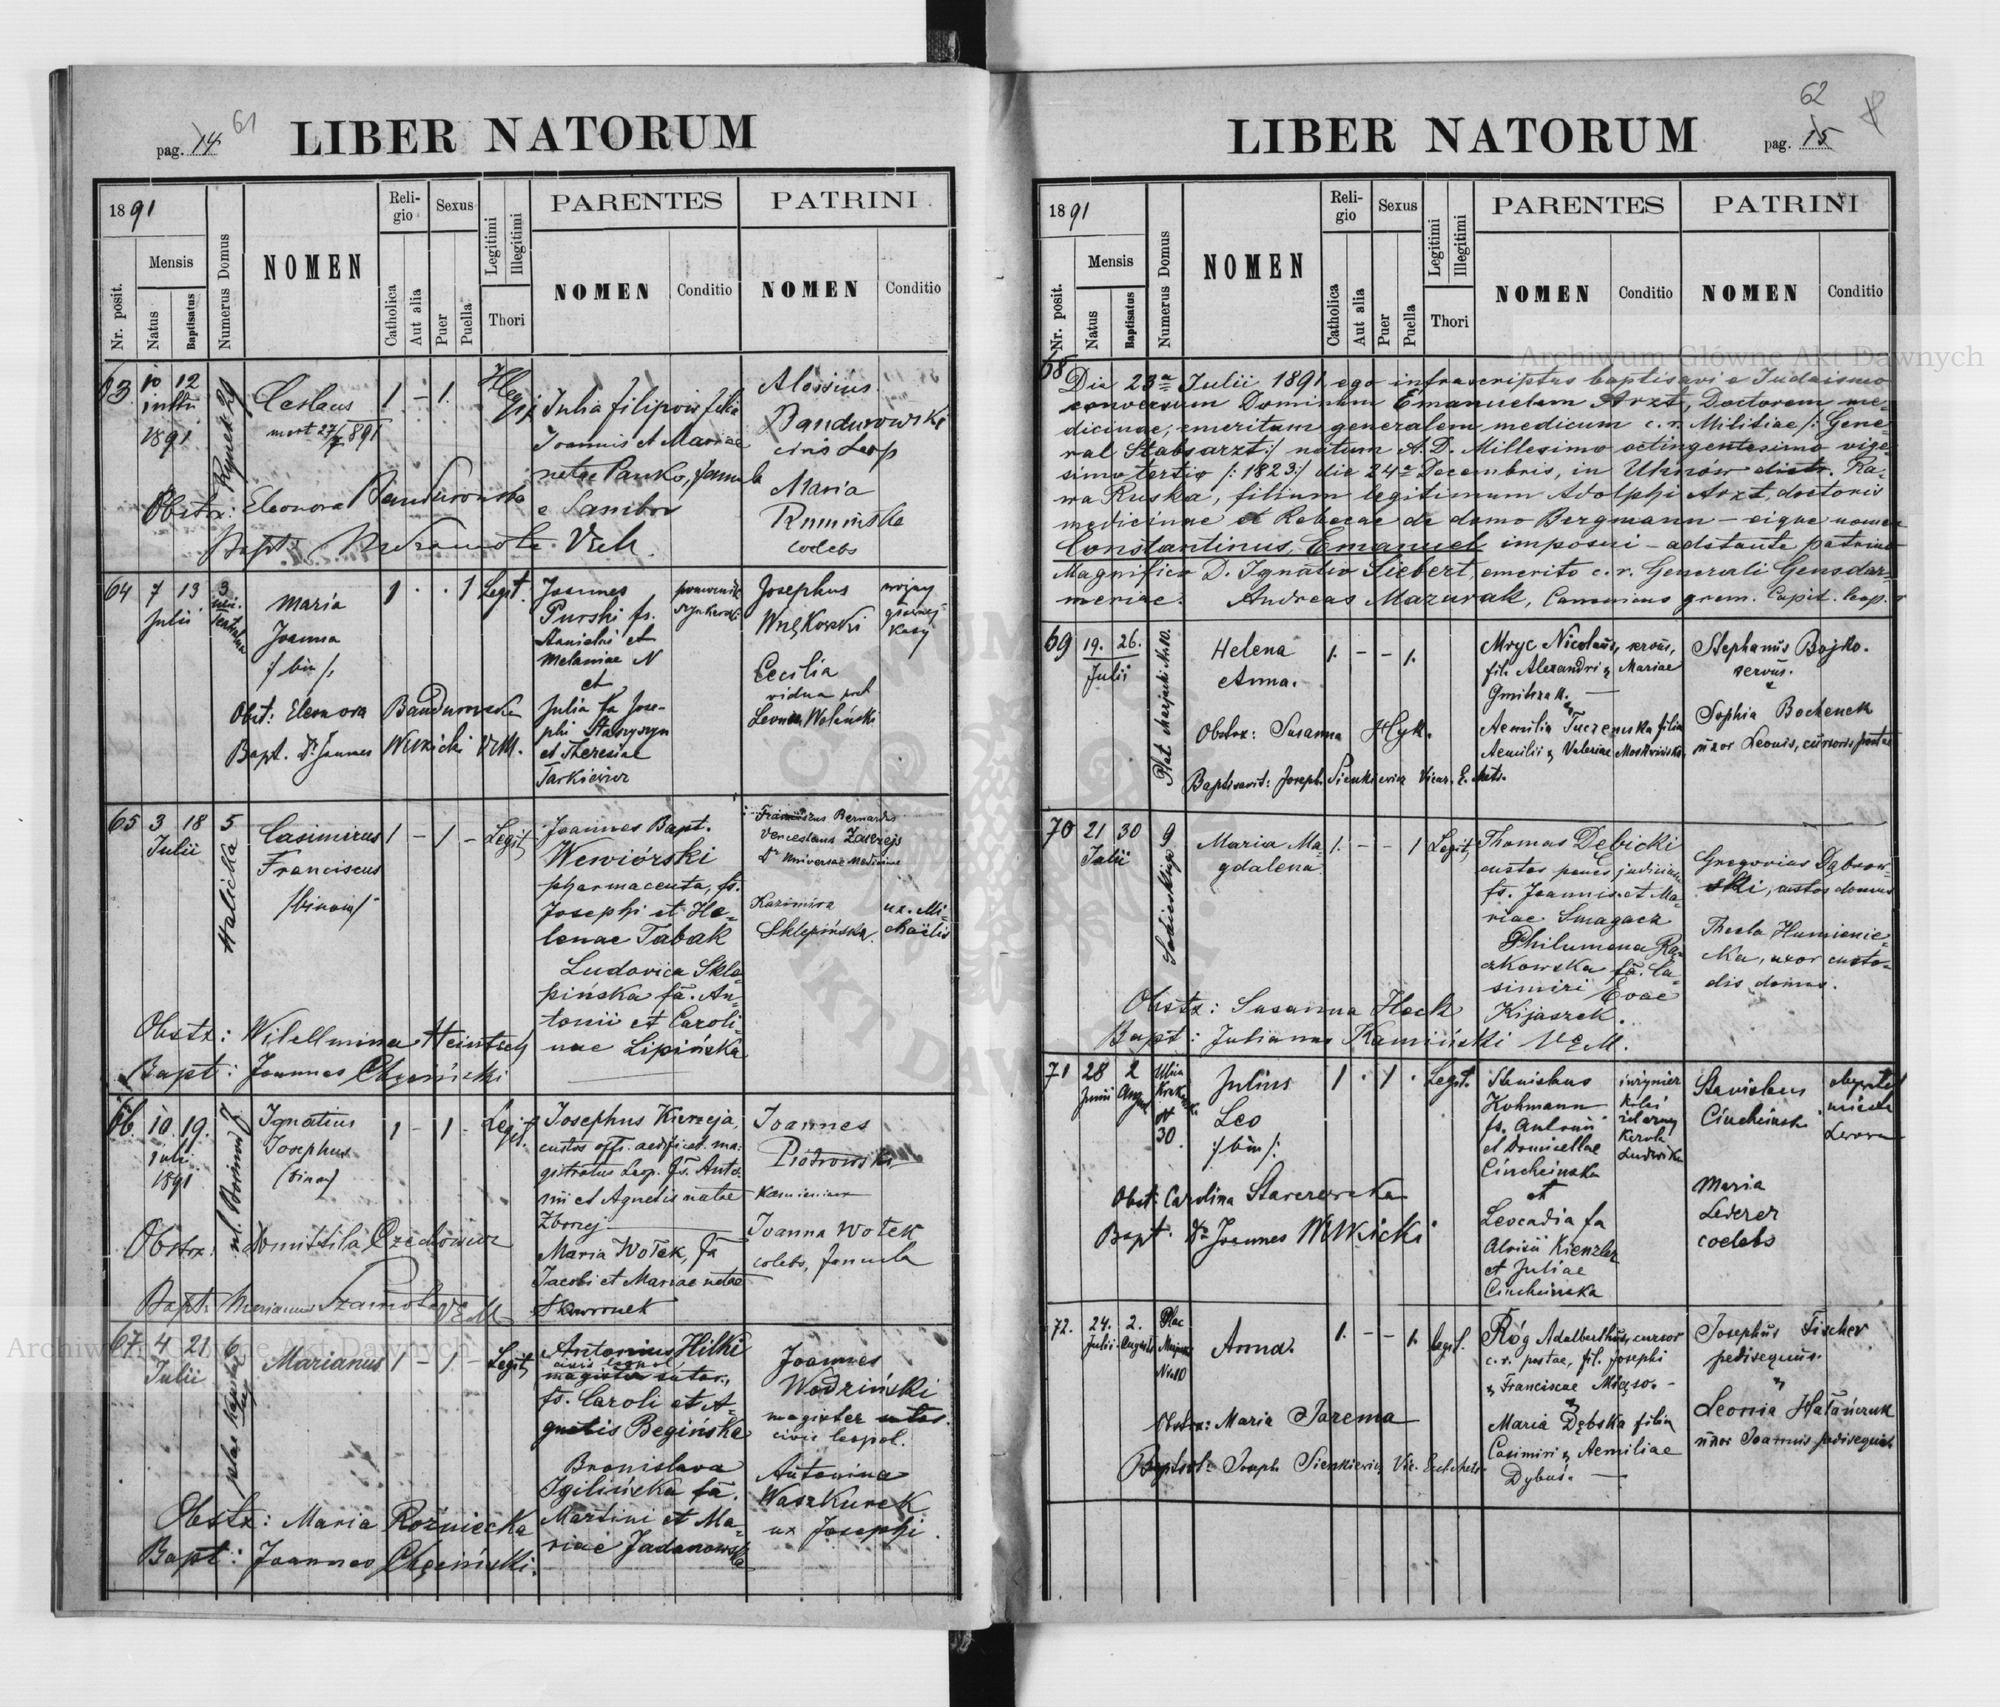 61
pag. 14
LIBER NATORUM
1891
Nr. posit.
Mensis
Natus
Baptisatus
Numerus Domus
NOMEN
Religio
Catholica
Aut alia
Sexus
Puer
Puella
Legitimi
Illegitimi
Thori
PARENTES
NOMEN
Conditio
PATRINI
NOMEN
Conditio
63
10 12
1891
Rynek 29
Ceslaus
mort 27/7 891
1 – 1.
Julia Filipow filia
Joannis et Mariae
natae Panko, famula
e Sambor
Aloisius
Bandurowski
civis Leop
Maria
Rumińska
coelebs
Obstx: Eleonora Bandurowska
Bapt:
64 7 13
Julii
3
Maria
Joanna
/: bin :/
1 . . 1 Legit.
Joannes
Purski fs.
Stanislai et
Melaniae N
et
Julia fa Jose-
phi Starzyszyn
et Theresiae
Tarkiewicz
Josephus
Wnękowski
Cecilia
vidua
woźny
kasy
Obst: Eleonora Bandurowska
Bapt. Dr. Joannes VEM.
65 3 18 5
Julii
Halicka
Casimirus
Franciscus
/binom/
1 – 1 – Legit,
Joannes Bapt.
Wewiórski
pharmaceuta, fs.
Josephi et He-
lenae Tabak
Ludovica Skle-
pińska fa. An-
tonii et Caroli-
nae Lipińska
Franciscus Bernardus
Venceslaus
Dr Universae Medicinae
Kazimira
Sklepińska
ux. Mi-
chaëlis
Obstx: Wilellmina Heintsch
Bapt: Joannes Chęciński
66 10 19.
Julii
1891
Ignatius
Josephus
(binom)
1 – 1 – Legit.
Josephus Kierzeja,
custos offi. aedificat. ma-
gistratus Leop. fs. Anto-
nii et Agnetis natae
Zborzej
Maria Wołek, fa
Jacobi et Mariae natae
Skowronek
Joannes
Piotrowski
Joanna Wołek
coelebs, famula
Obstx: Domittila Czechowicz
Bapt: Marianus Szamota VEM
67 4 21 6
Julii
Marianus
1 – 1 – Legit,
Antonius Hilki
civis leopol,
magister sutor,
fs. Caroli et A-
gnetis Begińska
Bronislava
Igilińska fa.
Martini et Ma-
riae Jadanowska
Joannes
Wodziński
magister sutor.
civis leopol.
Antonina
Waszkurek
ux Josephi.
Obstx: Maria Rożniecka
Bapt: Joannes Chęciński.
62
pag. 15
LIBER NATORUM
1891
Nr. posit.
Mensis
Natus
Baptisatus
Numerus Domus
NOMEN
Religio
Catholica
Aut alia
Sexus
Puer
Puella
Legitimi
Illegitimi
Thori
PARENTES
NOMEN
Conditio
PATRINI
NOMEN
Conditio
68
Die 23a Iulii 1891 ego infrascriptus baptisavi e Iudaismo
conversum Dominum Emanuelem Arzt, Doctorem me-
dicinae, emeritum generalem medicum c. r. Militiae /: Gene-
ral Stabsarzt :/ natum A. D. Millesimo octingentesimo vige-
simo tertio /: 1823 :/ die 24a Decembris, in Uhnow distr. Ra-
wa Ruska, filium legitimum Adolphi Arzt, doctoris
medicinae et Rebecae de domo Bergmann – eique nomen
Constantinus, Emanuel imposui – adstante patrino
Magnifico D. Ignatio Siebert, emerito c. r. Generali Gensdar-
meriae. Andreas Mazurak, Canonicus grem. Capit. leop.
69 19. 26.
Julii
Helena
Anna.
1. – – 1.
Mryc Nicolaus, servus,
fil. Alexandri & Mariae
Aemilia Tuczemska filia
Aemilii & Valeriae
Stephanus Bojko.
servus.
&
Sophia Bochenek
uxor Leonis, cursoris postae
Obstx: Susanna Hyk.
Baptisavit: Joseph. Sienkiewicz Vicar. E. Metr.
70 21 30 9
Julii
Maria Ma-
gdalena
1. – – 1 Legit,
Thomas Dębicki
custos penes judicium
fs. Joannis et Ma-
riae Smagacz
Philumena Ra-
czkowska fa. Ca-
simiri Evae
Kijaszek.
Gregorius Dąbrow-
ski, custos domus
Thecla Humienic-
ka, uxor custo-
dis domus.
Obstx: Susanna Heck
Bapt: Julianus Kamiński VEM.
71 28 2
Junii Aug.
30.
Julius
Leo
/: bin :/
1 . 1 . Legit.
Stanislaus
Kohmann
fs. Antonii
et Domicellae
Cinchcinska
et
Leocadia fa
Aloisii Kienzler
et Juliae
Cinchcinska
inżynier
kolei
Karola
Ludwika
Stanislaus
Maria
Lederer
coelebs
Obst: Carolina Starczewska
Bapt. Dr Joannes
72. 24. 2.
Julii Augusti
Plac
No 10
Anna.
1. – – 1. legit.
Róg Adalberthus, cursor
c. r. postae, fil. Josephi
& Franciscae Mięso. –
&
Maria Dębska filia
Casimiri & Aemiliae
Dybuś. –
Josephus Fischer
pedisequus.
&
Leonia Hałańczuk
uxor Joannis pedisequi
Obstx: Maria Jarema
Baptisat: Joseph Sienkiewicz Vic.
Archiwum Główne Akt Dawnych
Archiwum Główne Akt Dawnych